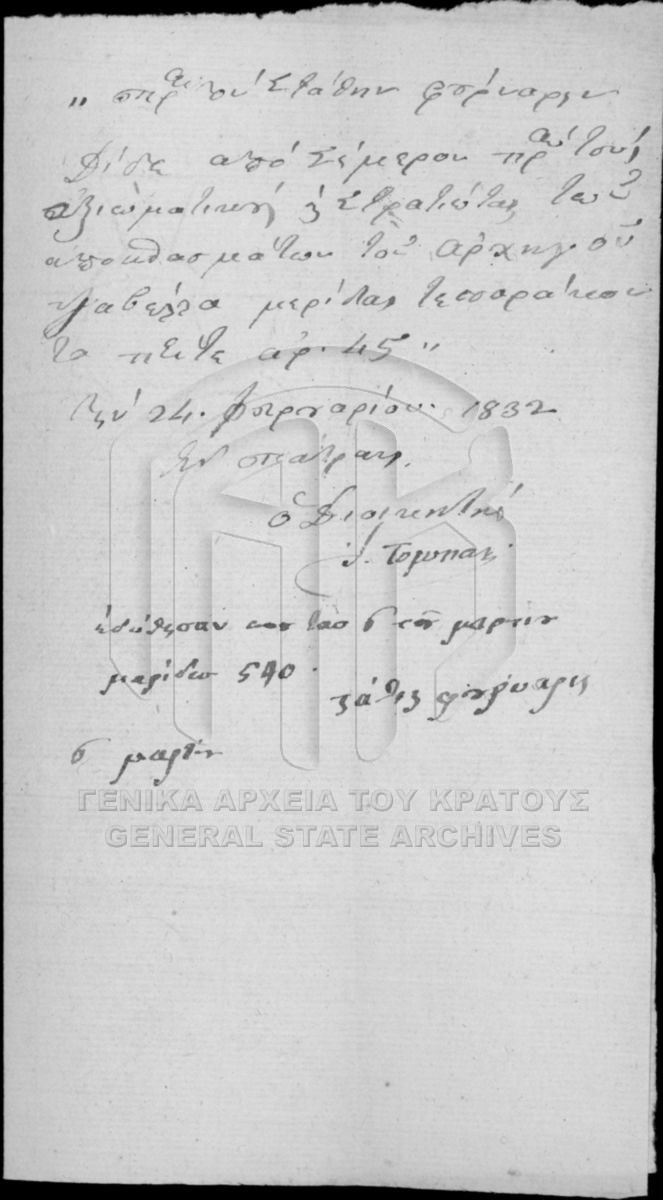 " πρ τον Στάθην φούρναρην
Δίδε από σήμερον πρ τους
αξιωματικούς & Στρατιώτας των
αποσπασμάτων του αρχηγού
τζαβέλλα μερίδας τεσσαράκον
τα πέντε αρ. 45 "
την 24. φεβρουαρίου 1832
Εν πάτραις.
ο Διοικητής
εδόθησαν 6 μαρτίου
μερίδες 540.
στάθης φούρναρης
6 μαρτίου
ΓΕΝΙΚΑ ΑΡΧΕΙΑ ΤΟΥ ΚΡΑΤΟΥΣ
GENERAL STATE ARCHIVES